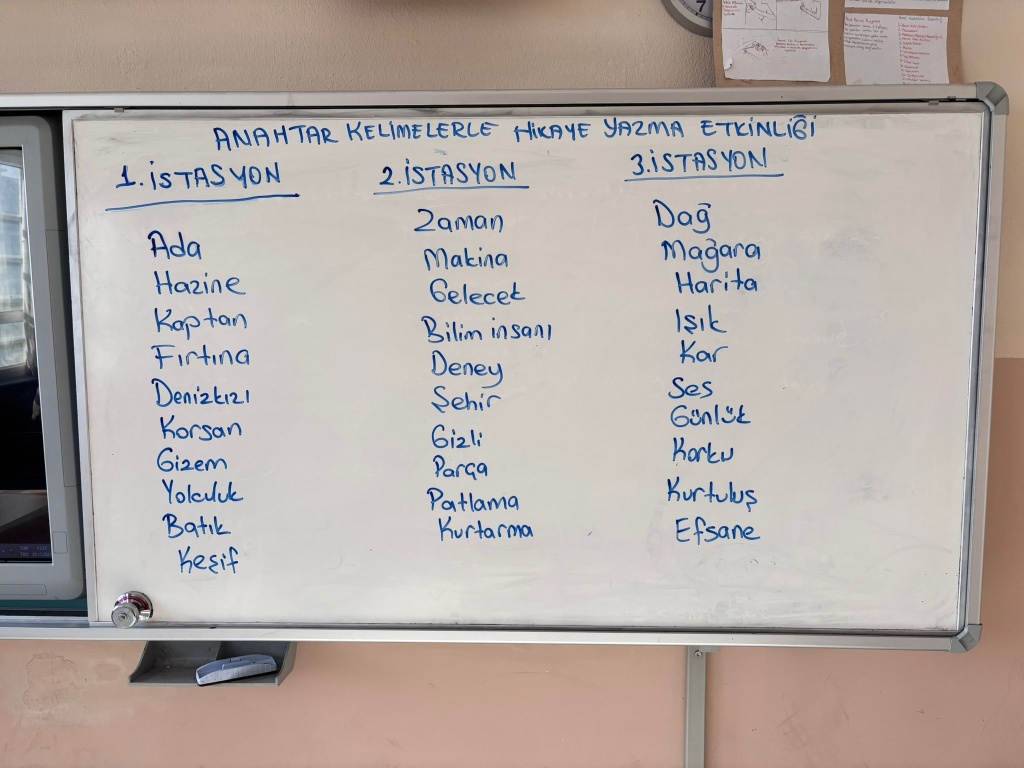 ANAHTAR KELİMELERLE HİKAYE YAZMA ETKİNLİĞİ
1. İSTASYON
Ada
Hazine
Kaptan
Fırtına
Denizkızı
Korsan
Gizem
Yolculuk
Batık
Keşif
2. İSTASYON
Zaman
Makina
Gelecek
Bilim insanı
Deney
Şehir
Gizli
Parça
Patlama
Kurtarma
3. İSTASYON
Dağ
Mağara
Harita
Işık
Kar
Ses
Günlük
Korku
Kurtuluş
Efsane
7